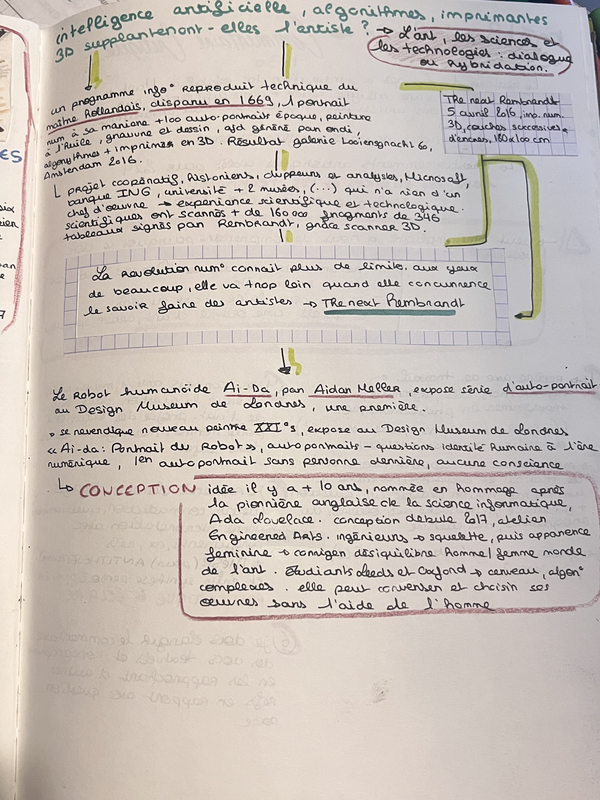 intelligence artificielle, algorithmes, imprimantes
3D supplanteront-elles l'artiste ? → L'art, les sciences et
les technologies : dialogue
ou hybridation.
un programme info° reproduit technique du
maître Hollandais, disparu en 1669, 1 portrait
num à sa manière +100 auto-portraits époque, peinture
à l'huile, gravure et dessin, ajd généré par ordi,
algorythmes + imprimer en 3D. Résultat galerie Looiersgracht 60,
Amsterdam 2016.
The next Rembrandt
5 avril 2016, imp. num.
3D, couches successives
d'encres, 180x100 cm
↳ projet coopératif, historiens, et analystes, Microsoft,
banque ING, université + 2 musées, (...) qui n'a rien d'un
chef d'œuvre → expérience scientifique et technologique.
scientifiques ont scannés + de 160 000 fragments de 346
tableaux signés par Rembrandt, grâce scanner 3D.
La révolution num° connaît plus de limite, aux yeux
de beaucoup, elle va trop loin quand elle concurrence
le savoir faire des artistes → The next Rembrandt
Le Robot humanoïde Ai-Da, par Aidan Meller, expose série d'auto-portrait
au Design Museum de Londres, une première.
• se revendique nouveau peintre XXI°s, expose au Design Museum de Londres
« Ai-da : Portrait du Robot », autoportraits - questions identité humaine à l'ère
numérique, 1er autoportrait sans personne derrière, aucune conscience
↳ CONCEPTION
idée il y a + 10 ans, nommée en hommage après
la pionnière anglaise de la science informatique,
Ada Lovelace. conception débute 2017, atelier
Engineered Arts. ingénieurs → squelette, puis apparence
féminine → corriger déséquilibre homme/femme monde
de l'art. Étudiants Leeds et Oxford → cerveau, algo°
complexes. elle peut converser et choisir ses
œuvres sans l'aide de l'homme